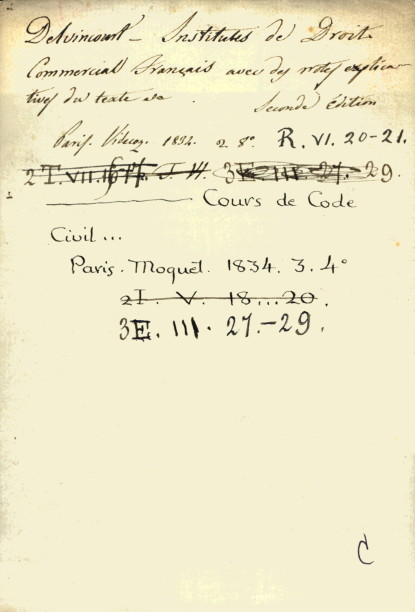 Delvincourt – Institutes de Droit
Commercial Français avec des notes explica
tives du texte &a. Seconde Édition
Paris. Videcoq. 1834. 2 8º. R. VI. 20-21.
2 T. VII. 3 E. III. 27. 29.
Cours de Code
Civil...
Paris. Moquet. 1834. 3. 4º
2I. V. 18...20.
3E. III. 27.-29.
C